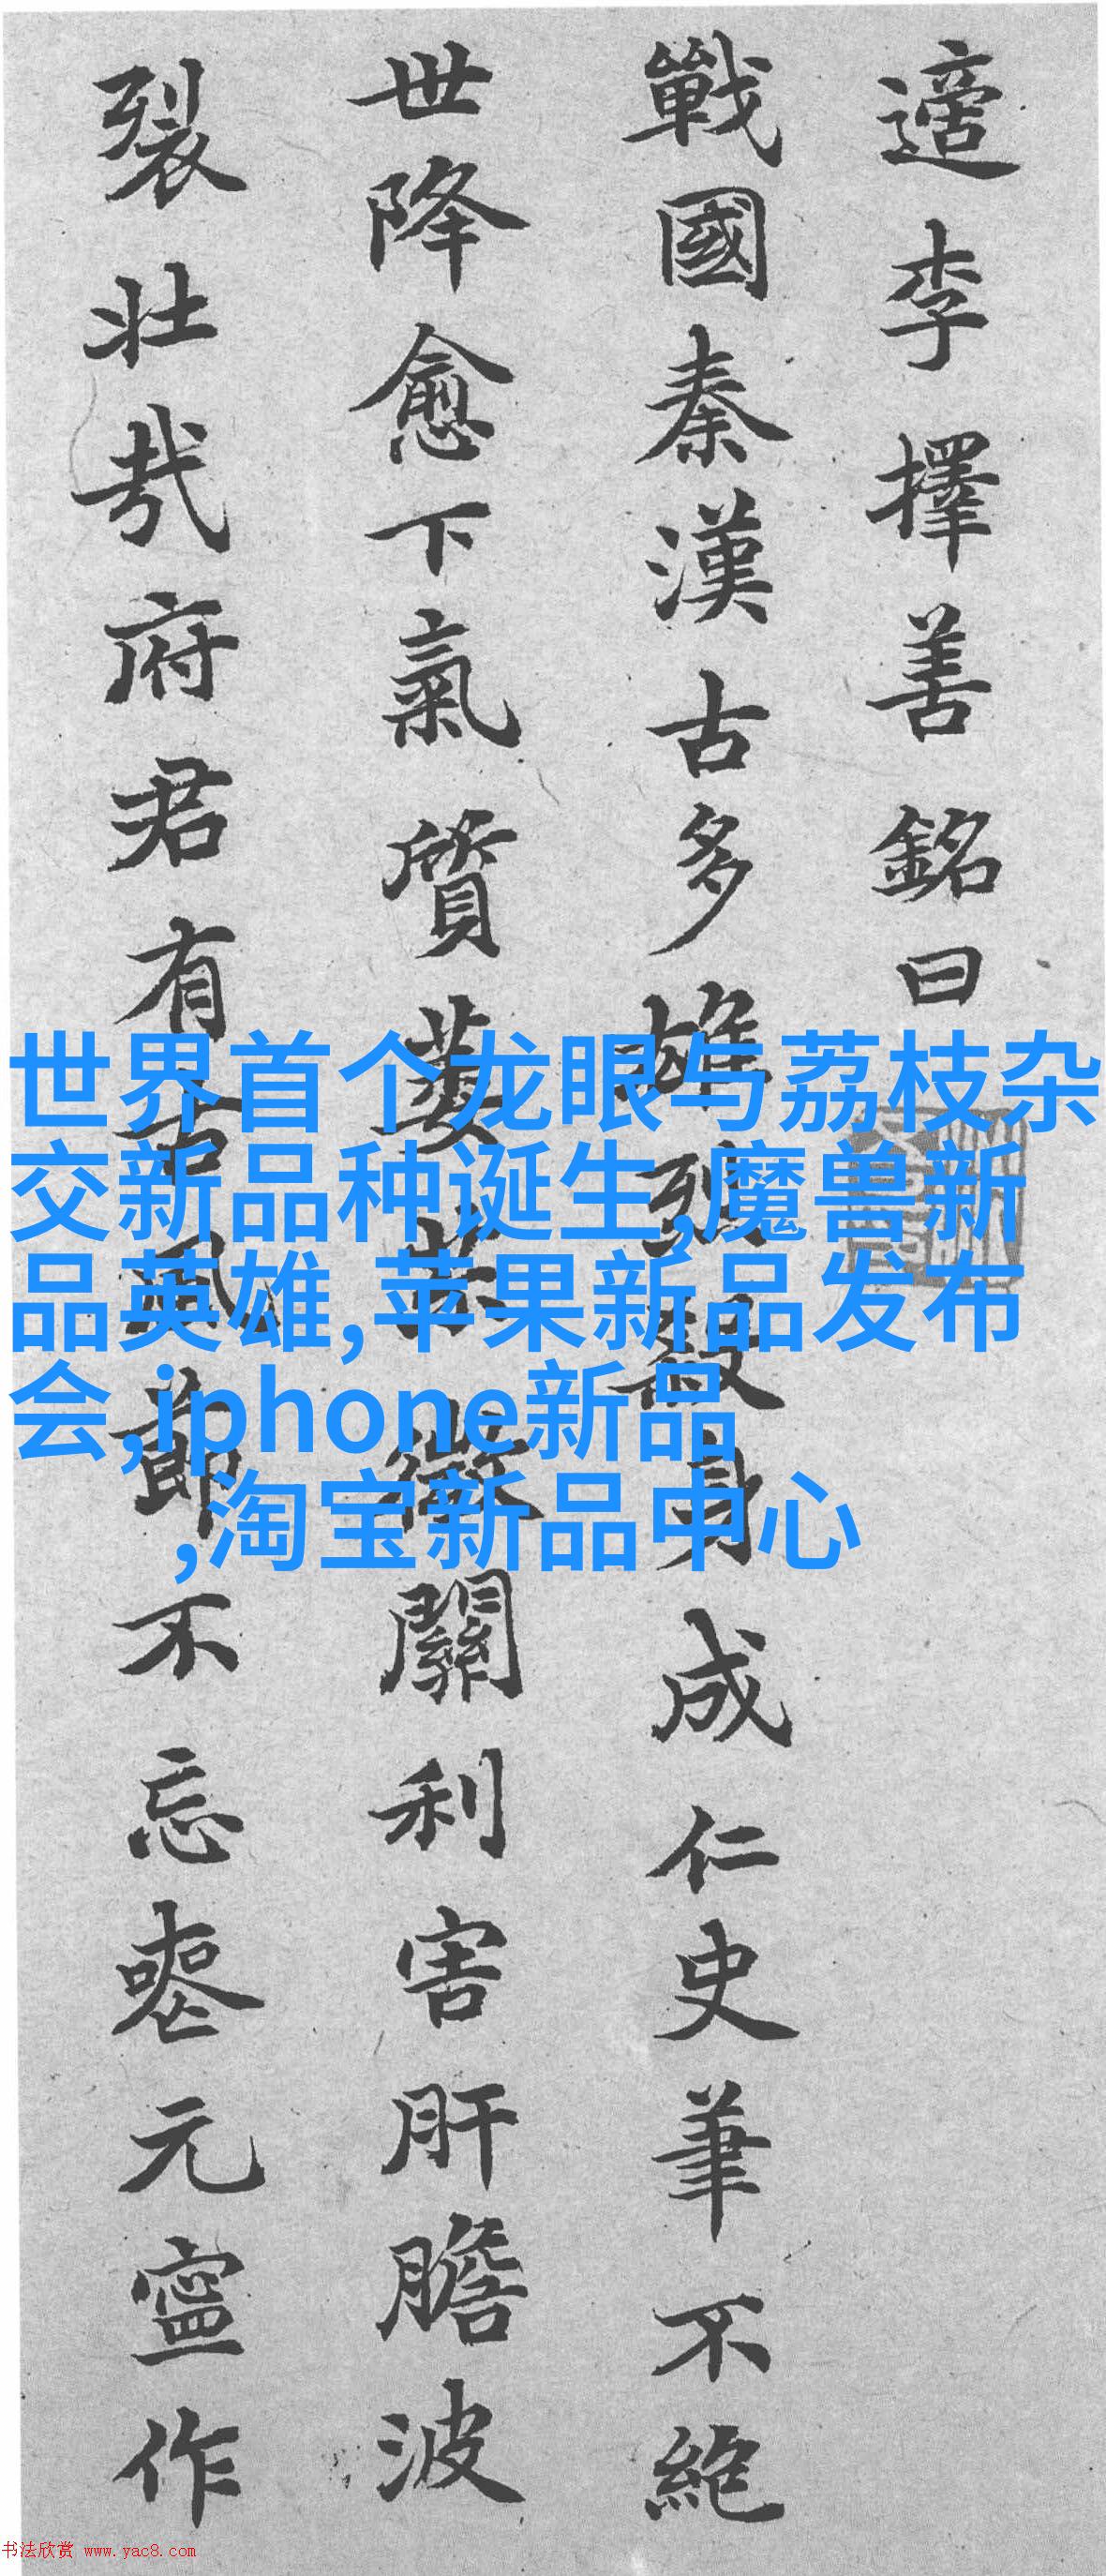 適李擇善銘曰
戰國秦漢古多雄烈殺身成仁史筆不絕
世降愈下氣質萎 微關利害肝膽波
裂壯哉府君有古風節不忘喪元寧作
世界首个龙眼与荔枝杂
交新品种诞生,魔兽新
品英雄,苹果新品发布
会,iphone新品
,淘宝新品中心
书法欣赏 www.yac8.com